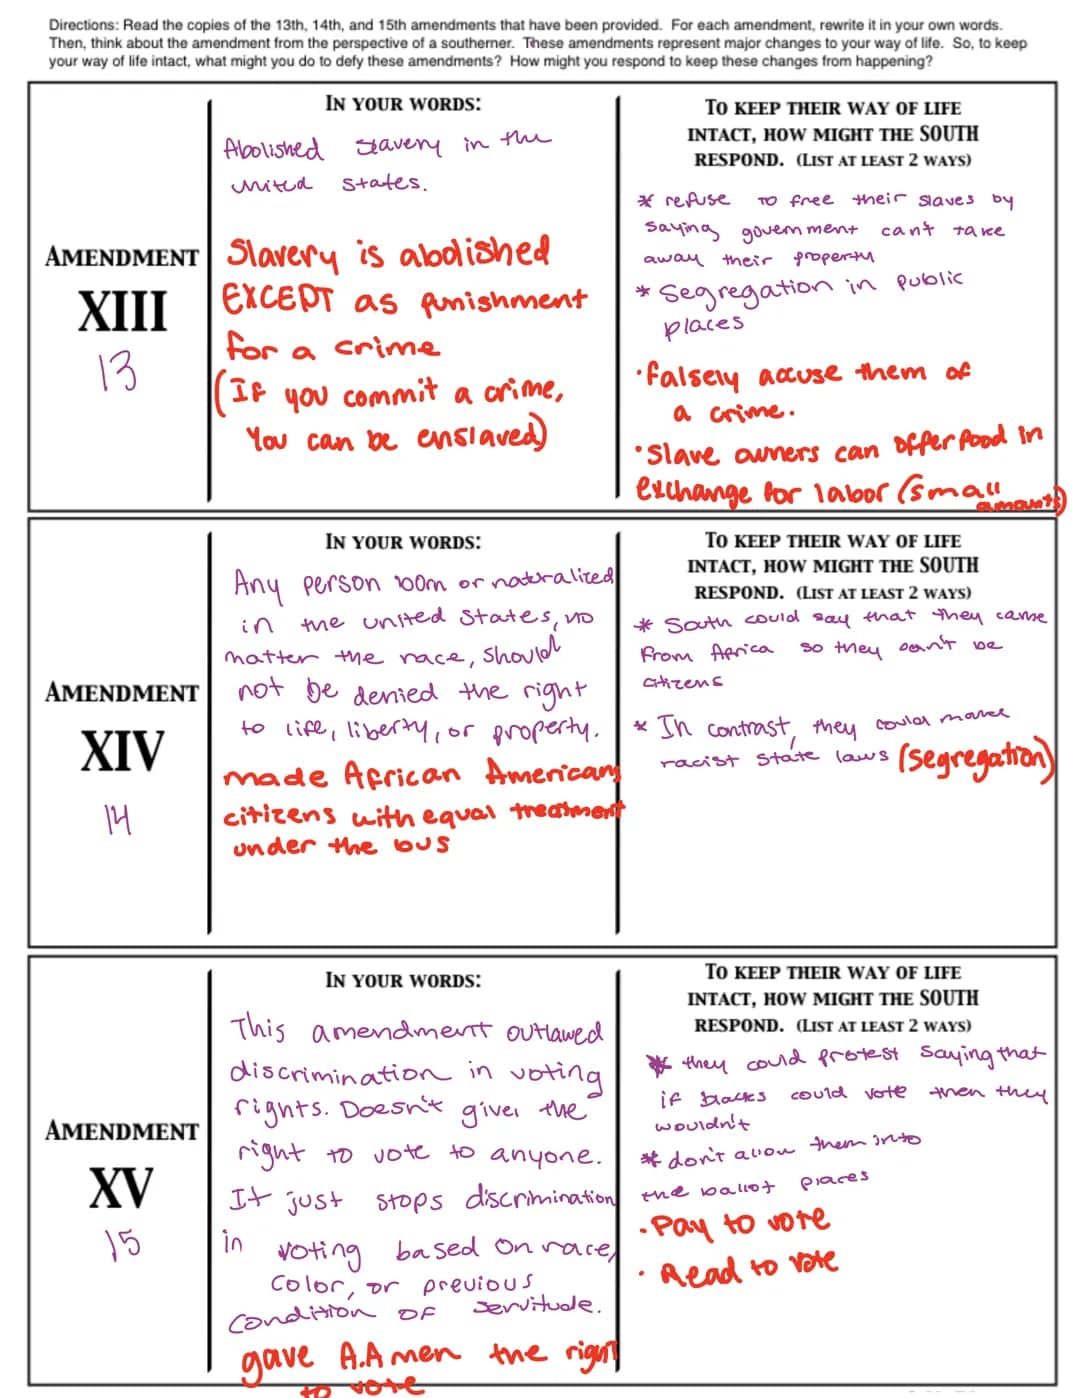 Directions: Read the copies of the 13th, 14th, and 15th amendments that have been provided.  For each amendment, rewrite it in your own words.
Then, think about the amendment from the perspective of a southerner.  These amendments represent major changes to your way of life.  So, to keep
your way of life intact, what might you do to defy these amendments?  How might you respond to keep these changes from happening?
AMENDMENT
XIII
13
IN YOUR WORDS:
Abolished slavery in the
united states.
Slavery is abolished
EXCEPT as punishment
for a crime
(If you commit a crime,
You can be enslaved)
TO KEEP THEIR WAY OF LIFE
INTACT, HOW MIGHT THE SOUTH
RESPOND.  (LIST AT LEAST 2 WAYS)
* refuse to free their slaves by
saying government can't take
away their property
* Segregation in public
places
• falsely accuse them of
a crime.
• Slave owners can offer food in
exchange for labor (small
amounts)
AMENDMENT
XIV
14
IN YOUR WORDS:
Any person born or naturalized
in the united States, no
matter the race, should
not be denied the right
to life, liberty, or property.
made African Americans
citizens with equal treatment
under the bus
TO KEEP THEIR WAY OF LIFE
INTACT, HOW MIGHT THE SOUTH
RESPOND.  (LIST AT LEAST 2 WAYS)
* South could say that they came
from Africa so they can't be
citizens
* In contrast, they could make
racist state laws (segregation)
AMENDMENT
XV
15
IN YOUR WORDS:
This amendment outlawed
discrimination in voting
rights. Doesn't give the
right to vote to anyone.
It just stops discrimination
in voting based on race,
color, or previous
condition of servitude.
gave A.A men the right
to vote
TO KEEP THEIR WAY OF LIFE
INTACT, HOW MIGHT THE SOUTH
RESPOND.  (LIST AT LEAST 2 WAYS)
* they could protest saying that
if blacks could vote then they
wouldn't
* don't allow them into
the ballot places
• Pay to vote
• Read to vote